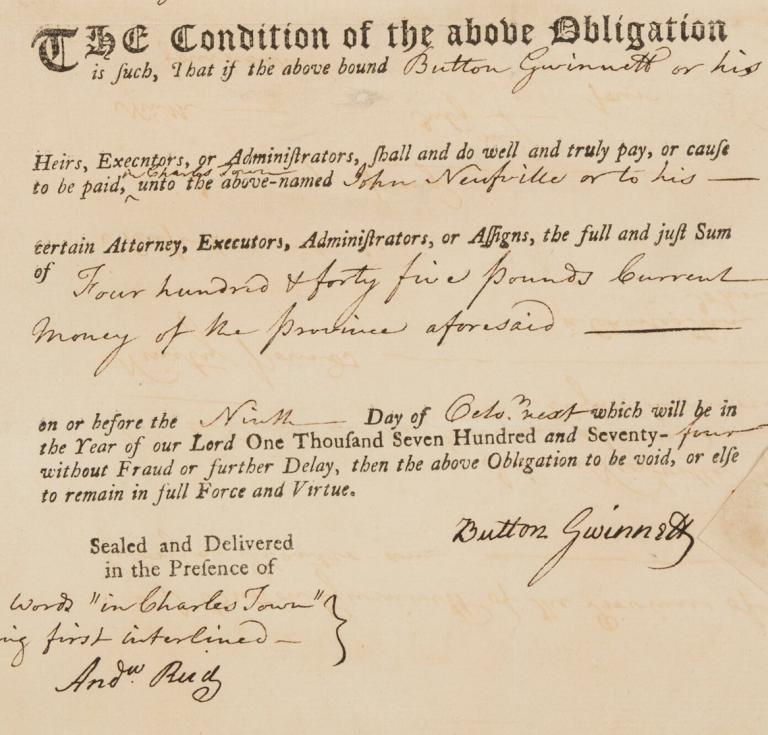 THE Condition of the above Obligation
is ſuch, That if the above bound Button Gwinnett or his
Heirs, Execntors, or Adminiſtrators, ſhall and do well and truly pay, or cauſe
in Charles Town
to be paid, ‸ unto the above-named John Neufville or to his —
certain Attorney, Executors, Adminiſtrators, or Aſſigns, the full and juſt Sum
of Four hundred & forty five pounds Current
Money of the Province aforesaid ———
on or before the Ninth — Day of Octo.r next which will be in
the Year of our Lord One Thouſand Seven Hundred and Seventy- four
without Fraud or further Delay, then the above Obligation to be void, or elſe
to remain in full Force and Virtue.
Button Gwinnett
Sealed and Delivered
in the Preſence of
words "in Charles Town"
ng first interlined —
Andw. Reid